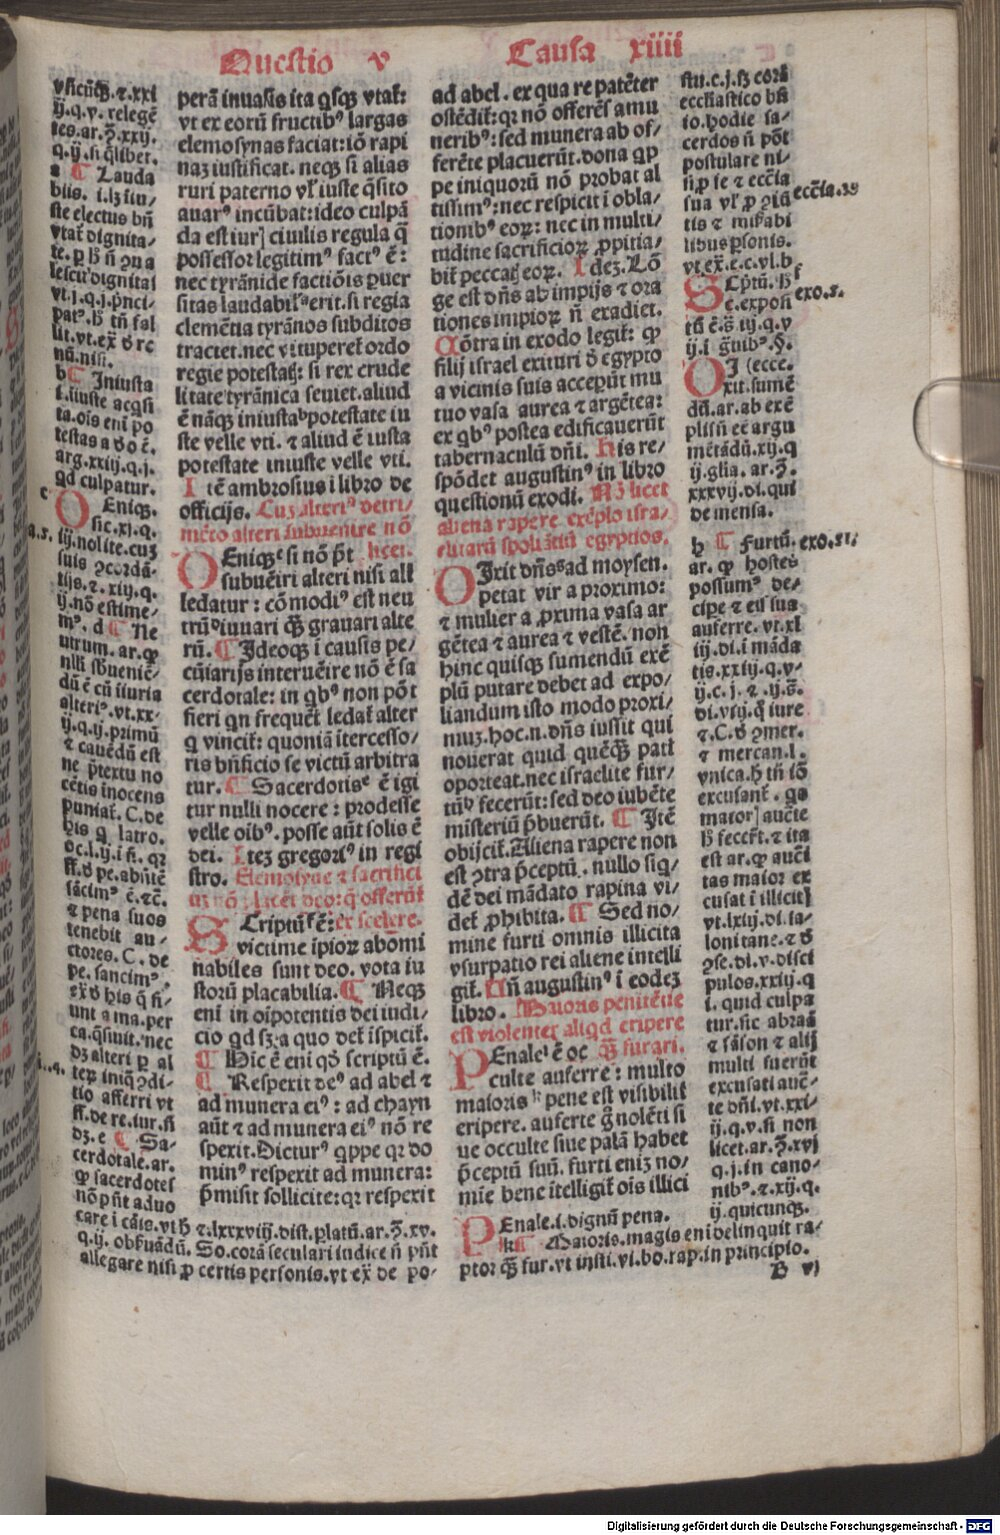 Questio v
Causa xiiii
vsicūqꝫ.⁊.xxi
ij.q.v. relegē
tes.ar.ꝫ.xxij.
q.ij.si qͥlibet.
a ¶ Lauda
bilis. i.lꝫ iiu/
ste electus bn̄
vtat̄ dignita/
te.
lescit dignitas
vt.j.q.j.pͥnci-
patꝰ.
lit.vt.ex̄
nū.nisi.
b ¶ Iniusta
i.iiuste acqͥsi
ta.ois eni po
testas a deo ē.
arg.xxiij.q.j.
qd culpatur.
c
DEniqꝫ.
sic.xj.q.
iij.nolite.cuꝫ
suis ꝯcordā-
tijs.⁊.xiij.q.
ij.nō estime/
mꝰ. d ¶ Ne
utrum. ar.ꝙ
nlli sb̄ueniē/
dū ē cū iiuria
alteriꝰ.vt.xx/
ij.q.ij.primū
⁊ cauēdū est
ne p̄textu no
cētis inocens
puniat̄. C.de
his q̄ latro.
oc.l.ij.i fi. qꝛ
ff.ꝺ pe.absētē
sācimꝰ ē.⁊c̄.
⁊ pena suos
tenebit au/
ctores. C. de
pe. sancimꝰ.
ex̄ ꝺ his q̄ fi/
unt a ma.per
ca.q̄siuit.nec
dꝫ alteri ꝑ al
teꝝ iniqͣ ꝯdi-
tio afferri vt
ff.de re.iur.si
dꝫ.e ¶ Sa-
cerdotale.ar.
ꝙ sacerdotes
nō pn̄t aduo
care i cāis.vt ⁊.lxxxviij.dist.ꝑlatū.ar.ꝫ.xv.
q.ij. obẜuādū. So.corā seculari iudice n̄ pn̄t
allegare nisi ꝓ certis personis.vt ex̄ de po-
perā inuasis ita qͥsqꝫ vtat̄:
vt ex eorū fructibꝰ largas
elemosynas faciat:iō rapi
naꝫ iustificat. neqꝫ si alias
ruri paterno vl̓ iuste q̄sito
auarꝰ incūbat:ideo culpā
da est iurꝭ ciuilis regula q̄
possessor legitimꝰ factꝰ ē:
nec tyrānide factiōis ꝑuer
sitas laudabil̓ erit.si regia
clemētia tyrānos subditos
tractet.nec vituperet̄ ordo
regie potestatꝭ: si rex crude
litate tyrānica seuiet.aliud
ē nāqꝫ iniusta potestate iu
ste velle vti. ⁊ aliud ē iusta
potestate iniuste velle vti.
Itē ambrosius i libro de
officijs. Cuꝫ alteriꝰ detri/
mēto alteri subuenire nō
licet.
DEniqꝫ si nō pt̄
subuēiri alteri nisi alt̓
ledatur : cōmodiꝰ est neu
trū iuuari qꝫ grauari alte
rū. ¶ Ideoqꝫ i causis pe/
cūiarijs interuēire nō ē sa
cerdotale: in qͥbꝰ non pōt
fieri qn frequēt̓ ledat̄ alter
q̄ vincit̄: quoniā itercesso/
ris bn̄ficio se victū arbitra
tur. ¶ Sacerdotis ē igi
tur nulli nocere : prodesse
velle oibꝰ. posse aūt solis ē
dei. Iteꝫ gregoriꝰ in regi
stro. Elemosyne ⁊ sacrifici
uꝫ nō placet deo: q̄ offerūt̄
ex scelere.
SCriptū ē:
victime ipioꝝ abomi
nabiles sunt deo. vota iu
storū placabilia. ¶ Neqꝫ
eni in oipotentis dei iudi/
cio qd sꝫ a quo det̄ ispicit̄.
¶ Hic ē eni qd̓ scriptū ē.
¶ Respexit deꝰ ad abel ⁊
ad munera eiꝰ : ad chayn
aūt ⁊ ad munera eiꝰ nō re
spexit. Dicturꝰ qͥppe qꝛ do
minꝰ respexit ad munera:
p̄misit sollicite: qꝛ respexit
ad abel . ex qua re patēter
ostēdit̄: qꝛ nō offerēs a mu
neribꝰ: sed munera ab of/
ferēte placuerūt. dona qͥp
pe iniquorū nō probat al
tissimꝰ: nec respicit i obla/
tionibꝰ eoꝝ: nec in multi/
tudine sacrificioꝝ ꝓpitia/
bit̄ peccatꝭ eoꝝ. Ideꝫ. Lō
ge est dn̄s ab impijs ⁊ ora
tiones impioꝝ n̄ exadiet.
Cōtra in exodo legit̄: ꝙ
filij israel exituri ꝺ egypto
a vicinis suis acceꝑūt mu
tuo vasa aurea ⁊ argētea:
ex qͥbꝰ postea edificauerūt
tabernaculū dn̄i. His re/
spōdet augustinꝰ in libro
questionū exodi. Nō licet
aliena rapere exēplo isra/
elitarū spoliātiū egyptios.
DIxit dn̄s ad moysen.
petat vir a proximo:
⁊ mulier a ꝓxima vasa ar
gētea ⁊ aurea ⁊ vestē. non
hinc quisqꝫ sumendū exē
plū putare debet ad expo/
liandum isto modo proxi/
muꝫ.hoc.n.dn̄s iussit qui
nouerat quid quēqꝫ pati
oporteat.nec israelite fur/
tū fecerūt: sed deo iubēte
misteriū p̄buerūt. ¶ Itē
obijcit̄. Aliena rapere non
est ꝯtra p̄ceptū . nullo siq̓/
dē dei mādato rapina vi/
det̄ ꝓhibita. ¶ Sed no/
mine furti omnis illicita
vsurpatio rei aliene intelli
git̄. Un̄ augustinꝰ i eodeꝫ
libro. Maioris penitētie
est violenter aliqd eripere
qꝫ furari.
PEnale ē oc
culte auferre : multo
maioris pene est visibilit̓
eripere. auferre g̊ nolēti si
ue occulte siue palā habet
p̄ceptū suū. furti enīꝫ no/
mie bene itelligit̄ ois illici
PEnale.i.dignū pena.
k ¶ Maioris.magis eni delinquit ra/
ptor qꝫ fur.vt insti.vi.bo.rap.in principio.
B vj
stu.c.j.sꝫ corā
ecclīastico bn̄
io.hodie sa-
cerdos n̄ pōt
postulare ni-
si ꝓ se ⁊ ecc̄ia
sua vl̓ ꝓ ꝯiū
tis ⁊ misabi
libus ꝑsonis.
vt ex̄.e.c.vl.b
ecc̄ia.38
SCptū.
e.exposi
tū ē.s̄ iij.q.v
ij.i grauibꝰ.§.
exo.s.
DI (ecce.
xit.sumē
dū.ar.ab exē
plis n̄ eē argu
mētādū.xij.q
ij.glia. ar.ꝫ.
xxxvij.di.qui
de mensa.
h ¶ Furtū.
ar. ꝙ hostes
possumꝰ de/
cipe ⁊ eis sua
auferre. vt.xl
iij.di.i māda
tis.xxiij.q.v-
ij.c.j. ⁊ .ij.s̄.
di.viij.q̄ iure
⁊.C.ꝺ ꝯmer.
⁊ mercan.l.
vnica.h tn̄ iō
excusant̄ . qꝛ
maiorꝭ aucte
fecert̄.⁊ ita
est ar.ꝙ aucti
tas maior ex
cusat i illicitꝭ
vt.lxiij.di.sa-
lonitane.⁊ ꝺ
ꝯse.di.v.disci
pulos.xxiij.q
i. quid culpa
tur.sic abraā
⁊ sāson ⁊ alij
multi fuerūt
excusati auc̄-
te dn̄i.vt.xxi-
ij.q.v.si non
licet.ar.ꝫ.xvj
q.j.in cano-
nibꝰ.⁊.xij.q.
ij.quicunqꝫ.
exo.81.
Digitalisierung gefördert durch die Deutsche Forschungsgemeinschaft - DFG